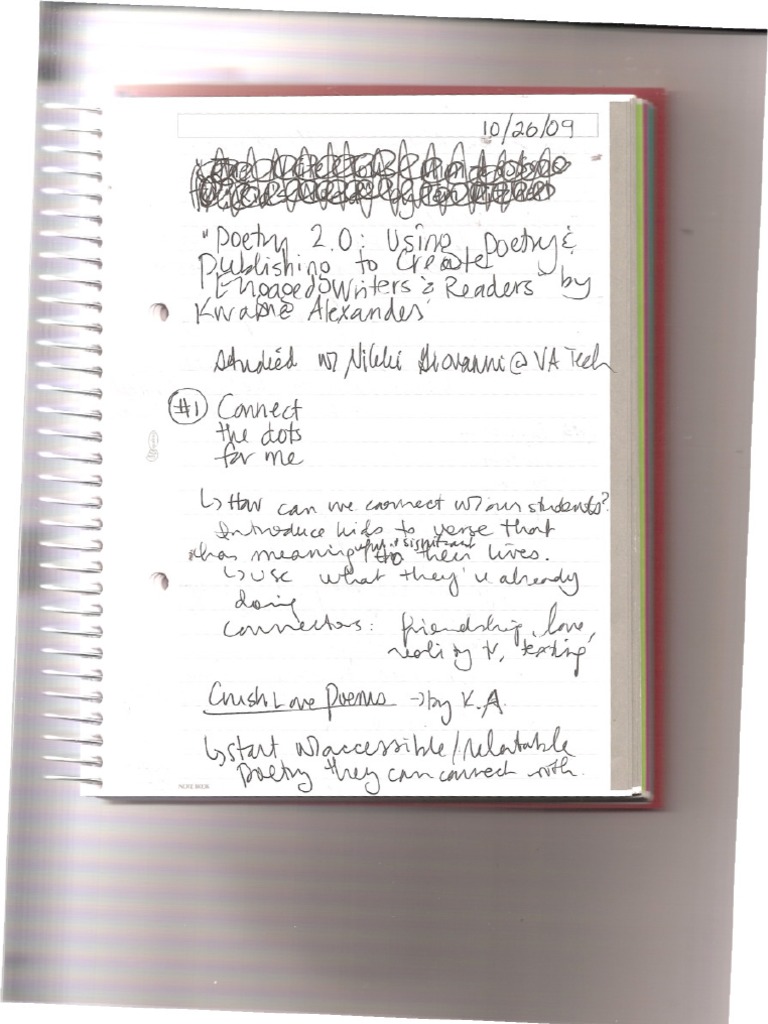 10/26/09
"Poetry 2.0: Using Poetry &
Publishing to Create
Engaged Writers & Readers by
Kwame Alexander"
Studied w/ Nikki Giovanni @ VA Tech
#1 Connect
the dots
for me
↳ How can we connect w/ our students?
Introduce kids to verse that
has meaningful & significant to their lives.
↳ use what they're already
doing
connectors: friendship, love,
reality tv, texting
Crush Love Poems → by K.A.
↳ start w/ accessible/relatable
poetry they can connect with.
NOTE BOOK